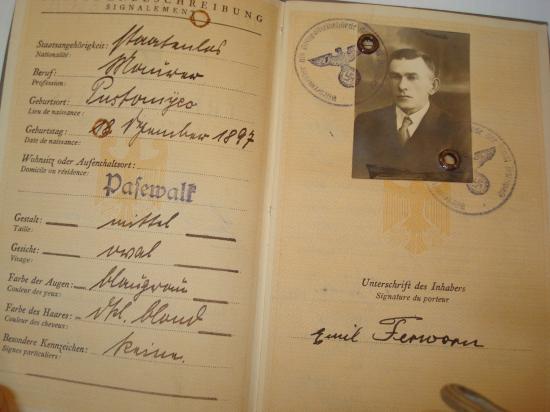 SCHREIBUNG
SIGNALEMENT
Staatsangehörigkeit: staatenlos
Nationalité:
Beruf: Maurer
Profession:
Geburtsort: Pustomyco
Lieu de naissance:
Geburtstag: 1897
Date de naissance:
Wohnsitz oder Aufenthaltsort:
Domicile ou résidence:
Pasewalk
Gestalt: mittel
Taille:
Gesicht: oval
Visage:
Farbe der Augen: blaugrau
Couleur des yeux:
Farbe des Haares: dkl. blond
Couleur des cheveux:
Besondere Kennzeichen: keine.
Signes particuliers:
Unterschrift des Inhabers
Signature du porteur
Emil Ferworn